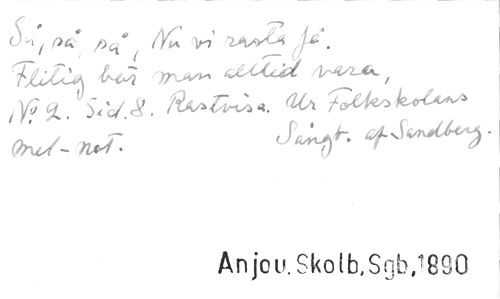 Så, så, så, Nu vi rasta få.
Flitig bör man alltid vara,
No 2. Sid. 8. Rastvisa. Ur Folkskolans
mel-not. Sångb. af Sandberg.
Anjou. Skolb, Sgb, 1890